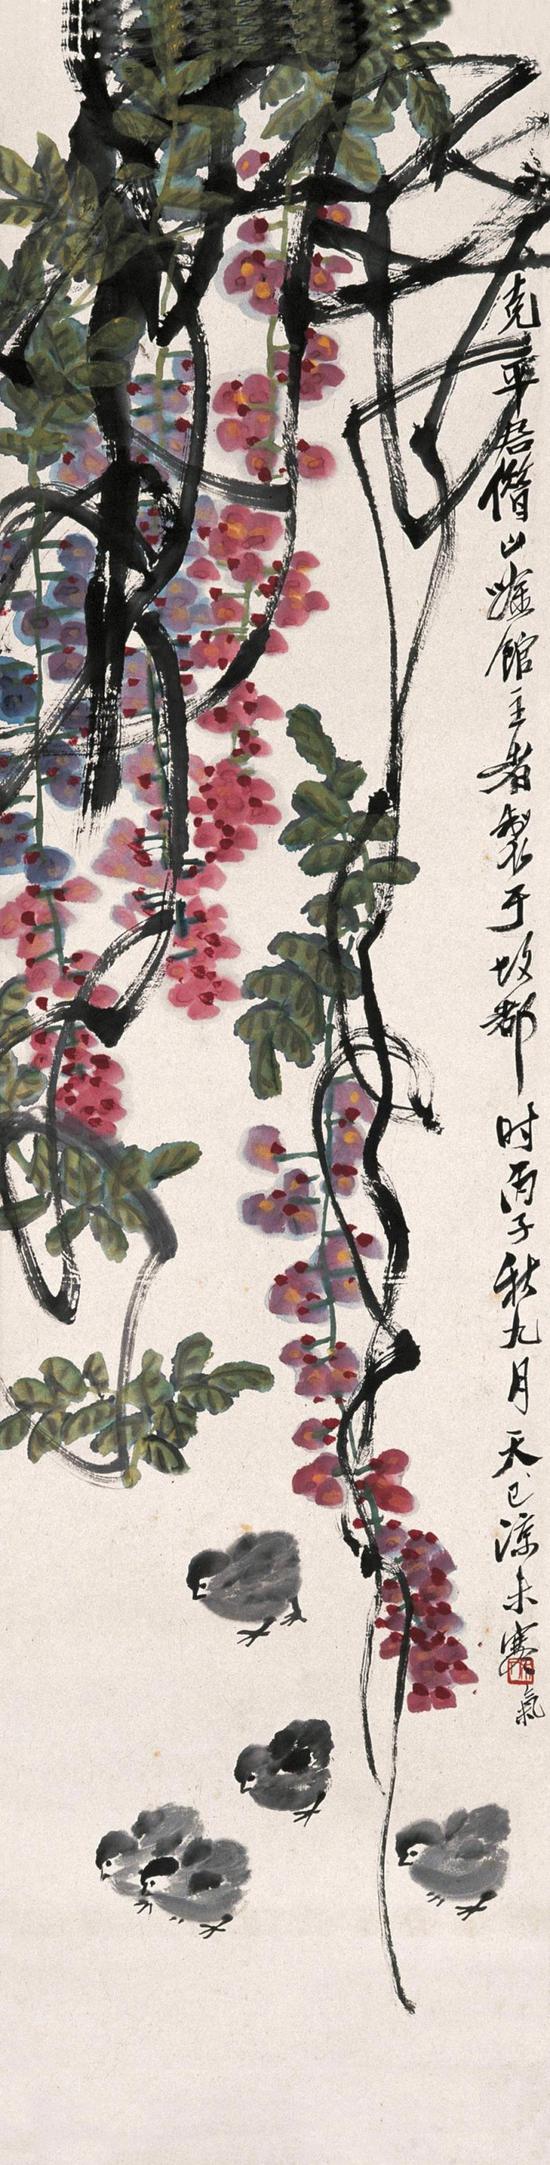 克平僭山唫館主者製于故都时丙子秋九月天已凉未寒氣